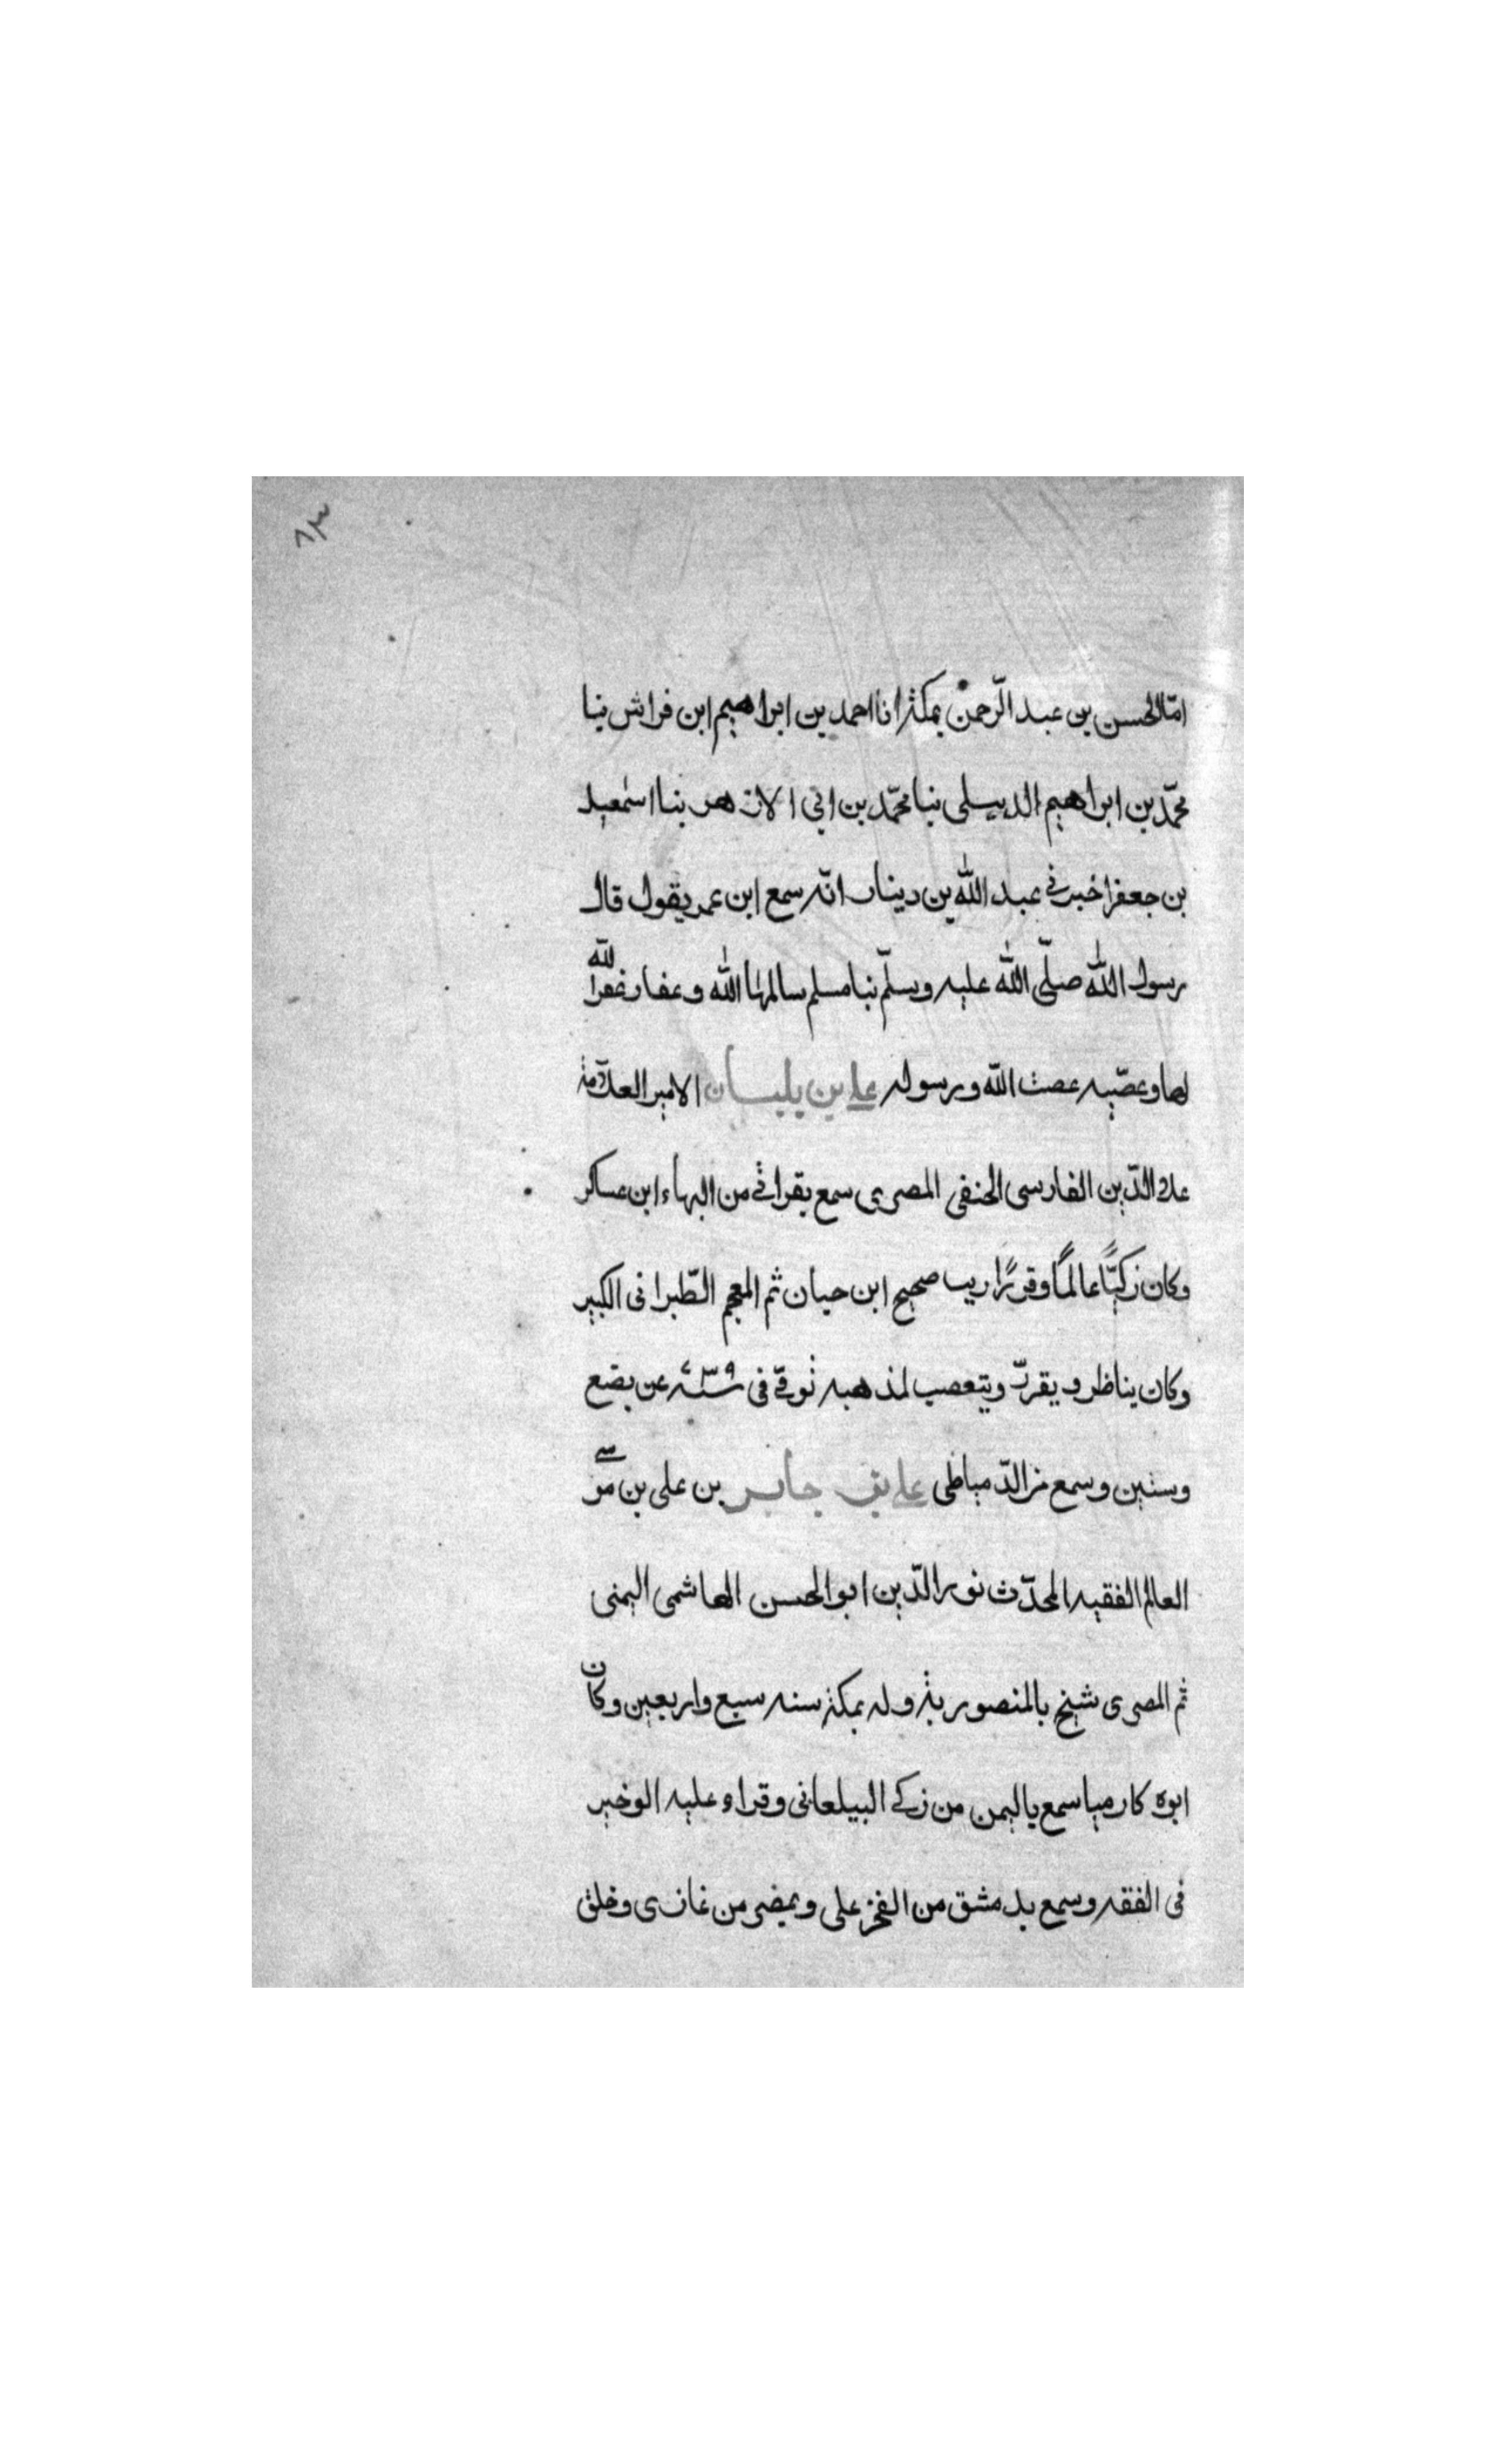 ٨٣
امّا الحسن بن عبد الرّحمن بمكة انا احمد بن ابراهيم ابن فراش نبا
محمّد بن ابراهيم الديبلى نبا محمّد بن ابي الازهر بنا اسمعيل
بن جعفر اخبرني عبد الله بن دينار انّه سمع ابن عمر يقول قال
رسول الله صلّى الله عليه وسلّم نبا مسلم سالمها الله وغفار غفر الله
لها وعصّيه عصت الله ورسوله علي بن بلبان الامير العلّامة
علاء الدّين الفارسى الحنفى المصرى سمع بقراتي من البهاء ابن عساكر
وكان زكيّاً عالماً وقوراً ريب صحيح ابن حبان ثم المعجم الطّبرانى الكبير
وكان يناظر ويقررّ ويتعصب لمذهبه توفي فى سنة ٧٣٩ عن بضع
وستين وسمع من الدّمياطى علي بن جابر بن على بن موسى
العالم الفقيه المحدّث نور الدّين ابو الحسن الهاشمى اليمنى
ثم المصرى شيخ بالمنصورية وله بمكة سنه سبع واربعين وكان
ابوه كارميا سمع باليمن من زكي البيلعانى وقراء عليه الوخيز
فى الفقه وسمع بدمشق من الفخر على وبمصر من غازى وخلق